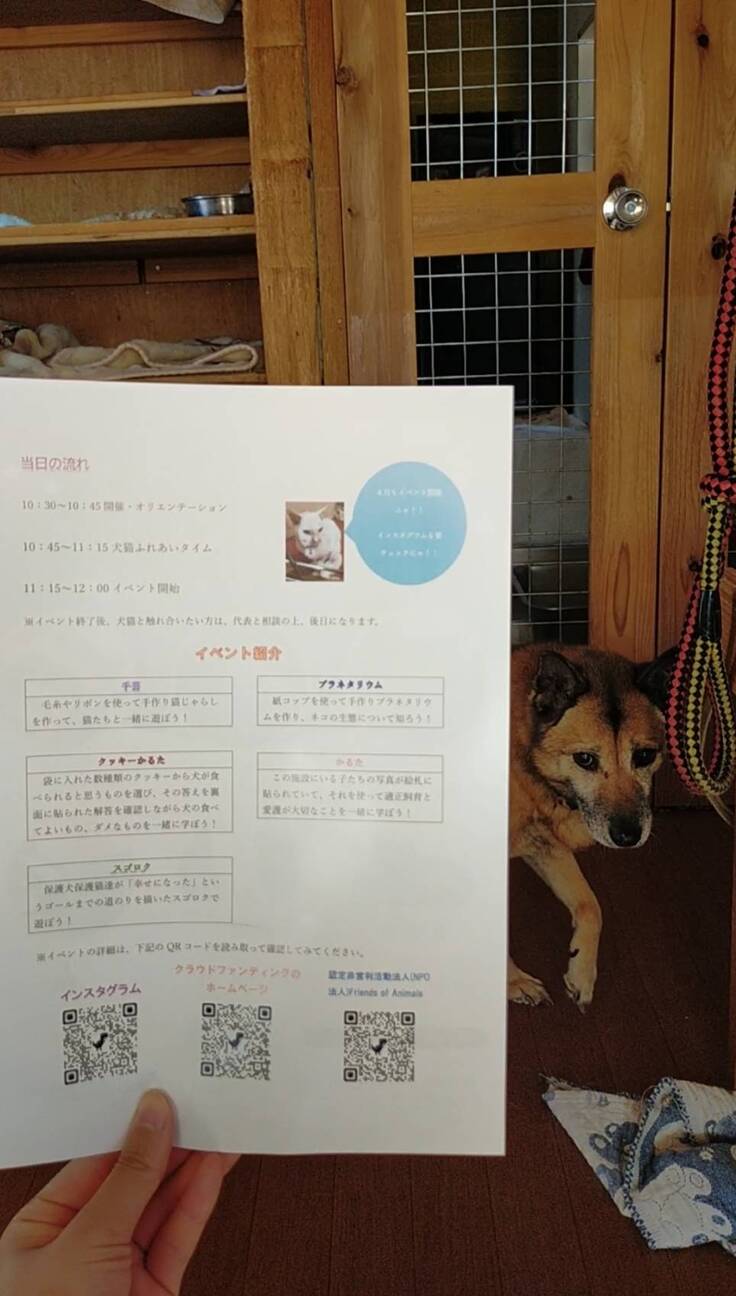 当日の流れ
10：30～10：45 開催・オリエンテーション
10：45～11：15 犬猫ふれあいタイム
11：15～12：00 イベント開始
※イベント終了後、犬猫と触れ合いたい方は、代表と相談の上、後日になります。
イベント紹介
手芸
毛糸やリボンを使って手作り猫じゃらし
を作って、猫たちと一緒に遊ぼう！
プラネタリウム
紙コップを使って手作りプラネタリウ
ムを作り、ネコの生態について知ろう！
クッキーかるた
袋に入れた数種類のクッキーから犬が食
べられると思うものを選び、その答えを裏
面に貼られた解答を確認しながら犬の食べ
てよいもの、ダメなものを一緒に学ぼう！
かるた
この施設にいる子たちの写真が絵札に
貼られていて、それを使って適正飼育と
愛護が大切なことを一緒に学ぼう！
スゴロク
保護犬保護猫達が「幸せになった」とい
うゴールまでの道のりを描いたスゴロクで
遊ぼう！
※イベントの詳細は、下記のQRコードを読み取って確認してみてください。
インスタグラム
クラウドファンディングの
ホームページ
認定非営利活動法人(NPO
法人)Friends of Animals